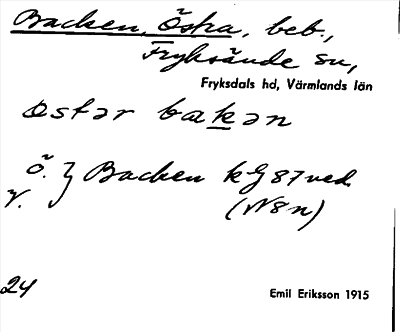 Backen, Östra, beb.,
Fryksände sn,
Fryksdals hd, Värmlands län
östər bakən
Ö. } Backen kG 87 ved.
V. (N8n)
24
Emil Eriksson 1915